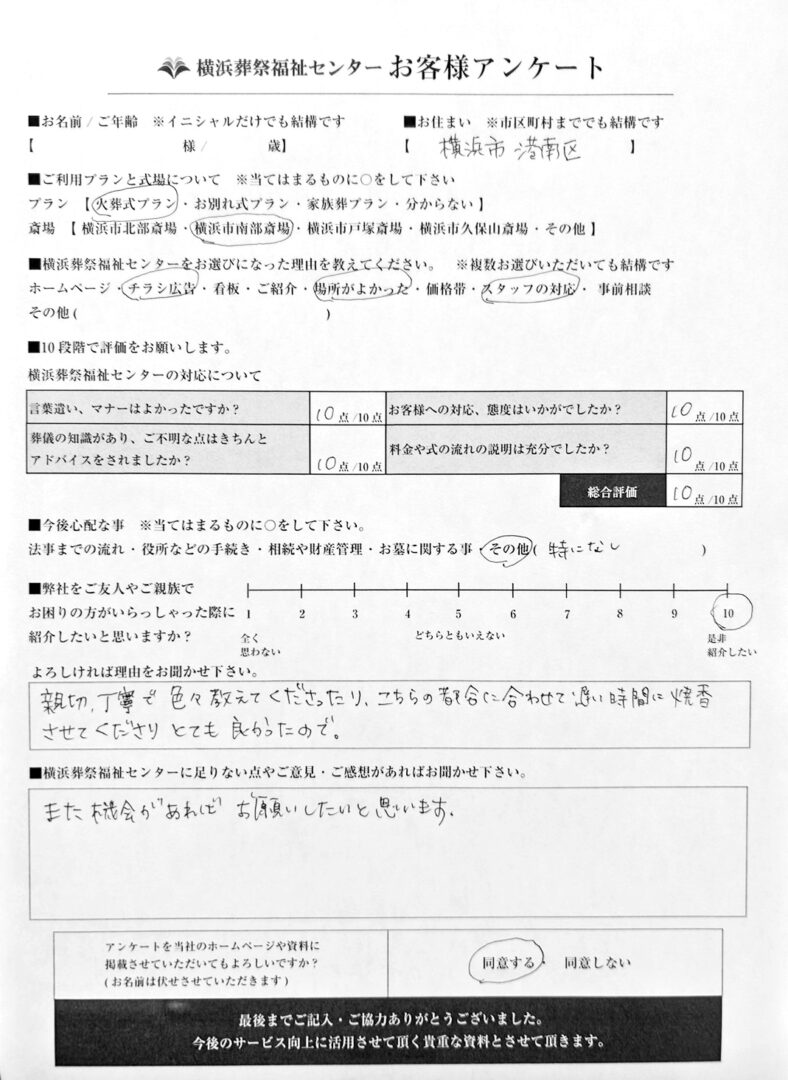 横浜葬祭福祉センター お客様アンケート
■お名前/ご年齢 ※イニシャルだけでも結構です ■お住まい ※市区町村まででも結構です
【 様/ 歳】 【 横浜市 港南区 】
■ご利用プランと式場について ※当てはまるものに○をして下さい
プラン 【 火葬式プラン・お別れ式プラン・家族葬プラン・分からない 】
斎場 【 横浜市北部斎場・横浜市南部斎場・横浜市戸塚斎場・横浜市久保山斎場・その他 】
■横浜葬祭福祉センターをお選びになった理由を教えてください。 ※複数お選びいただいても結構です
ホームページ・チラシ広告・看板・ご紹介・場所がよかった・価格帯・スタッフの対応・事前相談
その他( )
■10段階で評価をお願いします。
横浜葬祭福祉センターの対応について
言葉遣い、マナーはよかったですか? 10点/10点 お客様への対応、態度はいかがでしたか? 10点/10点
葬儀の知識があり、ご不明な点はきちんと
アドバイスをされましたか? 10点/10点 料金や式の流れの説明は充分でしたか? 10点/10点
総合評価 10点/10点
■今後心配な事 ※当てはまるものに○をして下さい。
法事までの流れ・役所などの手続き・相続や財産管理・お墓に関する事・その他( 特になし )
■弊社をご友人やご親族で
お困りの方がいらっしゃった際に
紹介したいと思いますか?
1 2 3 4 5 6 7 8 9 10
全く
思わない
どちらともいえない
是非
紹介したい
よろしければ理由をお聞かせ下さい。
親切、丁寧で色々教えてくださったり、こちらの都合に合わせて遅い時間に焼香
させてくださりとても良かったので。
■横浜葬祭福祉センターに足りない点やご意見・ご感想があればお聞かせ下さい。
また機会があればお願いしたいと思います。
アンケートを当社のホームページや資料に
掲載させていただいてもよろしいですか?
(お名前は伏せさせていただきます)
同意する・同意しない
最後までご記入・ご協力ありがとうございました。
今後のサービス向上に活用させて頂く貴重な資料とさせて頂きます。